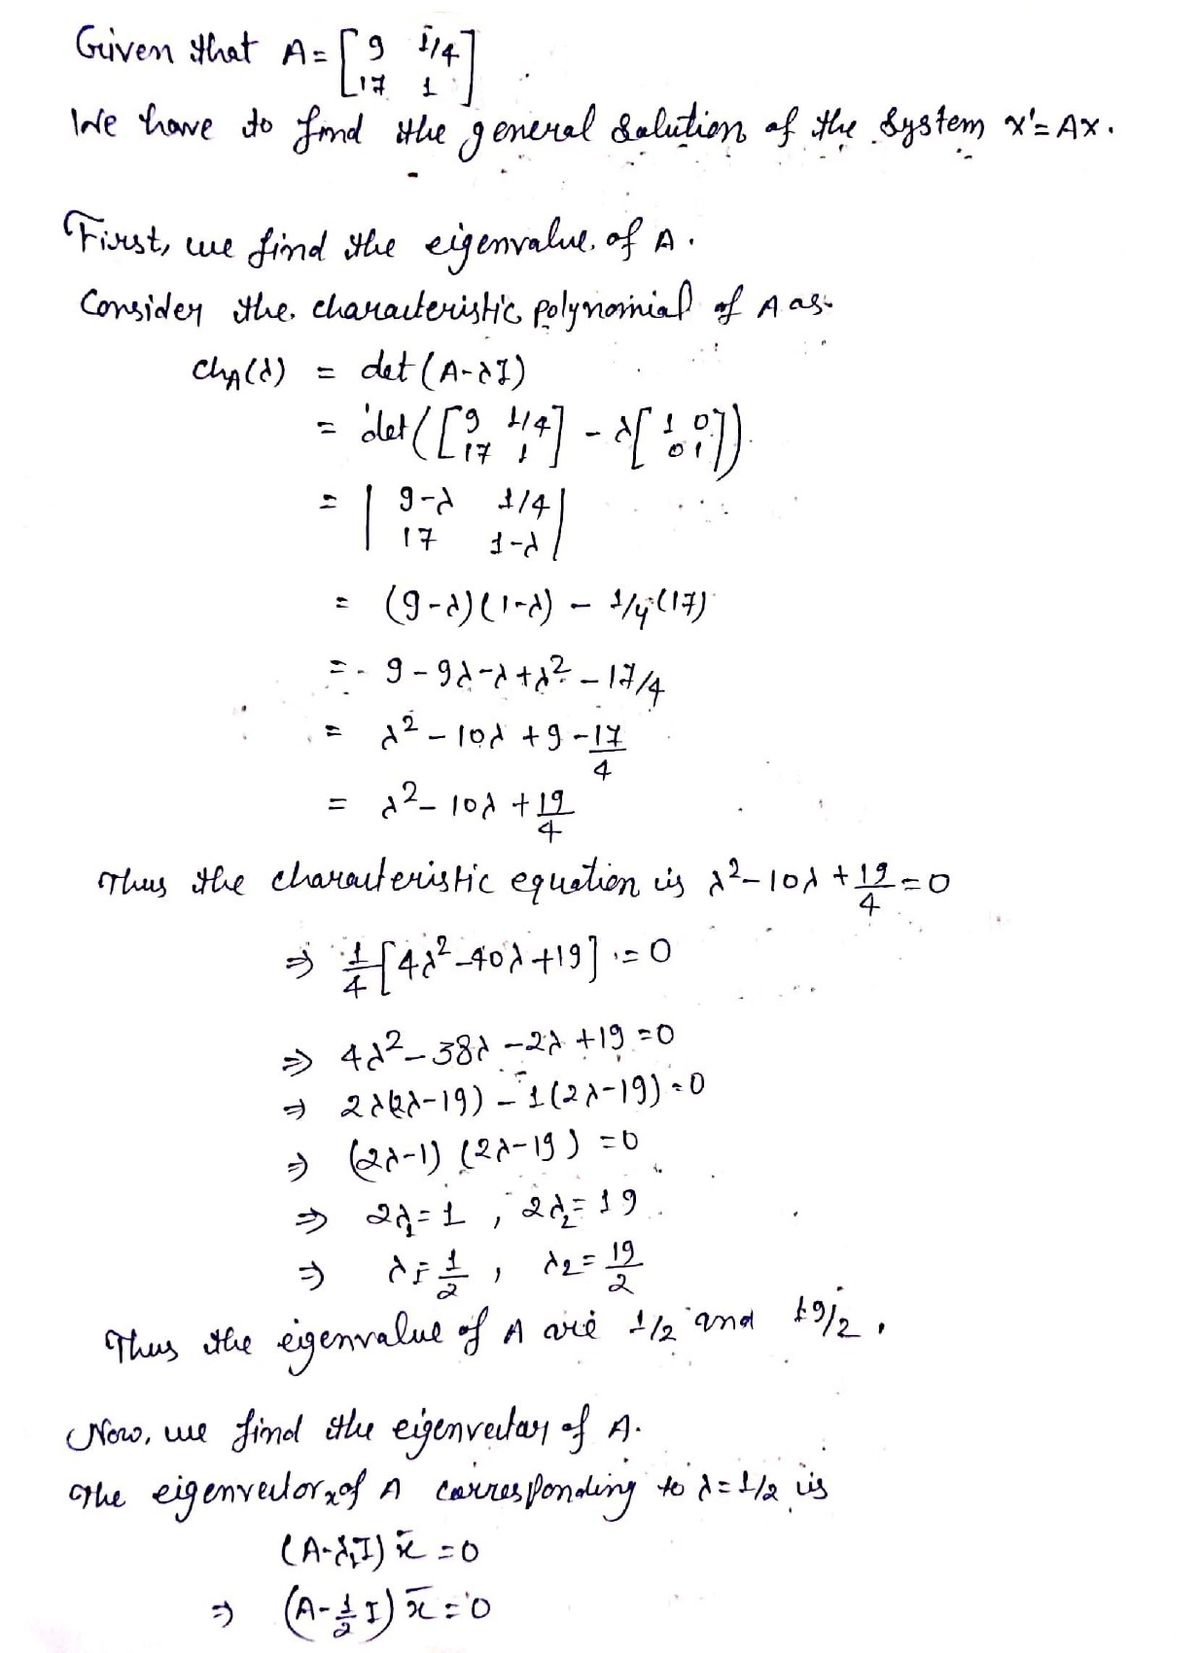 Given that A = [ 9 1/4
17 1 ]
We have to find the general solution of the system x' = Ax.
First, we find the eigenvalue of A.
Consider the characteristic polynomial of A as
ch_A(λ) = det(A-λI)
= det([ 9 1/4 ; 17 1 ] - λ[ 1 0 ; 0 1 ])
= | 9-λ 1/4 |
| 17 1-λ |
= (9-λ)(1-λ) - 1/4(17)
= 9 - 9λ - λ + λ² - 17/4
= λ² - 10λ + 9 - 17/4
= λ² - 10λ + 19/4
Thus the characteristic equation is λ² - 10λ + 19/4 = 0
⇒ 1/4 [4λ² - 40λ + 19] = 0
⇒ 4λ² - 38λ - 2λ + 19 = 0
⇒ 2λ(2λ-19) - 1(2λ-19) = 0
⇒ (2λ-1) (2λ-19) = 0
⇒ 2λ₁ = 1 , 2λ₂ = 19
⇒ λ₁ = 1/2 , λ₂ = 19/2
Thus the eigenvalue of A are 1/2 and 19/2.
Now, we find the eigenvector of A.
The eigenvector x of A corresponding to λ = 1/2 is
(A-λ₁I) x̄ = 0
⇒ (A - 1/2 I) x̄ = 0